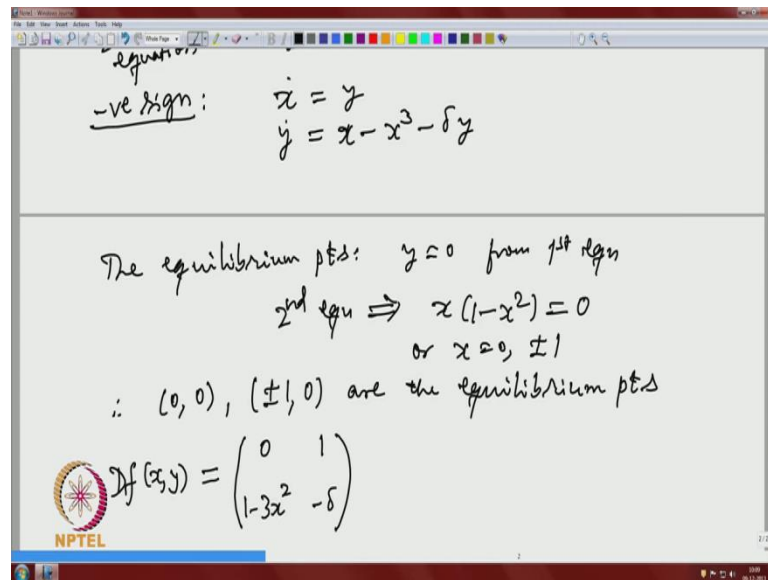 Note1 - Windows Journal
File Edit View Insert Actions Tools Help
equation
-ve sign: ẋ = y
ẏ = x - x³ - δy
The equilibrium pts: y = 0 from 1st eqn
2nd eqn ⇒ x(1-x²) = 0
or x = 0, ±1
∴ (0,0), (±1,0) are the equilibrium pts
Df(x,y) = ( 0 1
1-3x² -δ )
NPTEL
2
2/2